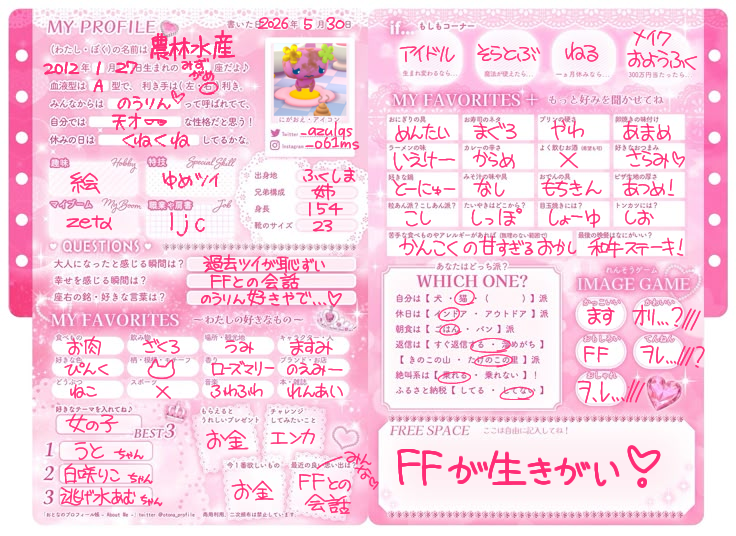 MY PROFILE
書いた日 2026年 5月 30日
(わたし・ぼく)の名前は 農林水産
2012年 1月 27日生まれの みずがめ 座だよ♪
血液型は A 型で、 利き手は(左・右)利き、
みんなからは のうりん♡ って呼ばれてて、
自分では 天才 な性格だと思う!
休みの日は くねくね してるかな。
にがおえ・アイコン
Twitter _azulqs
Instagram __061ms
趣味 Hobby 絵
特技 Special Skill ゆめツイ
マイブーム My Boom zeta
職業や肩書 Job ljc
出身地 ふくしま
兄弟構成 姉
身長 154
靴のサイズ 23
QUESTIONS
大人になったと感じる瞬間は? 過去ツイが恥ずい
幸せを感じる瞬間は? FFとの会話
座右の銘・好きな言葉は? のうりん好きやで...♡
MY FAVORITES ～わたしの好きなもの～
食べもの お肉
飲み物 ごくろ
場所・観光地 うみ
キャラクター ますみ
好きな色 ぴんく
柄・模様・モチーフ
香り ローズマリー
ブランド・お店 のえみー
どうぶつ ねこ
スポーツ ×
音楽 ふわふわ
本・雑誌 れんあい
好きなテーマを入れてね♪
女の子 BEST3
1 うと ちゃん
2 白咲りこ ちゃん
3 逃げ水あむ ちゃん
もらえるとうれしいプレゼント お金
チャレンジしてみたいこと エンカ
今1番欲しいもの お金
最近の良い思い出は みんな♡ FFとの会話
「おとなのプロフィール帳 - About Me -」: twitter @otona_profile 商用利用、二次頒布は禁止しています。
if... もしもコーナー
アイドル 生まれ変わるなら...
そらとぶ 魔法が使えたら...
ねる 一ヵ月休みなら...
メイク おようふく 300万円当たったら...
MY FAVORITES + もっと好みを聞かせてね
おにぎりの具 めんたい
お寿司のネタ まぐろ
プリンの硬さ やわ
卵焼きの味付け あまめ
ラーメンの味 いえけー
カレーの辛さ からめ
よく飲むお酒 ×
好きなおつまみ さらみ♡
好きな鍋 とーにゅー
みそ汁の味や具 なし
おでんの具 もちきん
ピザ生地の厚さ あつめ!
粒あん派?こしあん派? こし
たいやきはどこから? しっぽ
目玉焼きには? しょーゆ
トンカツには? しお
苦手な食べものやアレルギーがあれば かんこくの甘すぎるおかし
最後の晩餐はなにがいい? 和牛ステーキ!
あなたはどっち派?
WHICH ONE?
自分は【 犬 ・ 猫 ・ ( ) 】派
休日は【 インドア ・ アウトドア 】派
朝食は【 ごはん ・ パン 】派
返信は【 すぐ返信する ・ 溜めがち 】
【 きのこの山 ・ たけのこの里 】派
絶叫系は【 乗れる ・ 乗れない 】!
ふるさと納税【 してる ・ してない 】
れんそうゲーム
IMAGE GAME
かっこいい ます
かわいい オリ...?///
おもしろい FF
てんねん ヲレ...///?
おしゃれ ヲ、レ...///
FREE SPACE ここは自由に記入してね!
FFが生きがい♡